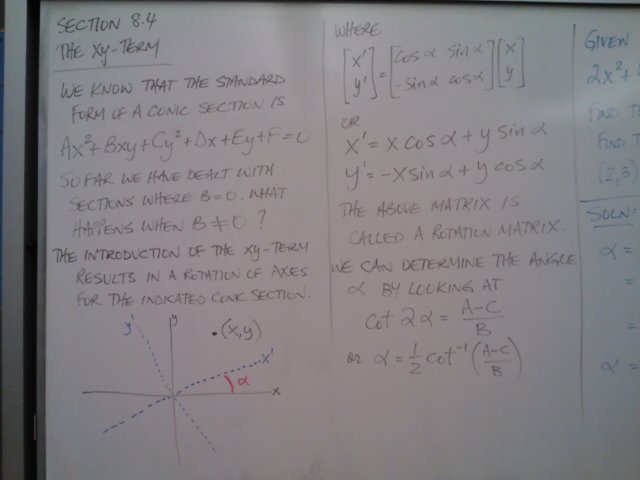 SECTION 8.4
THE xy-TERM
WE KNOW THAT THE STANDARD
FORM OF A CONIC SECTION IS
Ax²+Bxy+Cy²+Dx+Ey+F=0
SO FAR WE HAVE DEALT WITH
SECTIONS WHERE B=0. WHAT
HAPPENS WHEN B≠0?
THE INTRODUCTION OF THE xy-TERM
RESULTS IN A ROTATION OF AXES
FOR THE INDICATED CONIC SECTION.
y' y •(x,y)
x'
α
x
WHERE
[x' y'] = [cos α sin α -sin α cos α][x y]
OR
x' = x cos α + y sin α
y' = -x sin α + y cos α
THE ABOVE MATRIX IS
CALLED A ROTATION MATRIX.
WE CAN DETERMINE THE ANGLE
α BY LOOKING AT
cot 2α = A-C/B
or α = 1/2 cot⁻¹(A-C/B)
GIVEN
2x²+
FIND T
FIND T
(2,3)
SOLN:
α =
=
=
α =